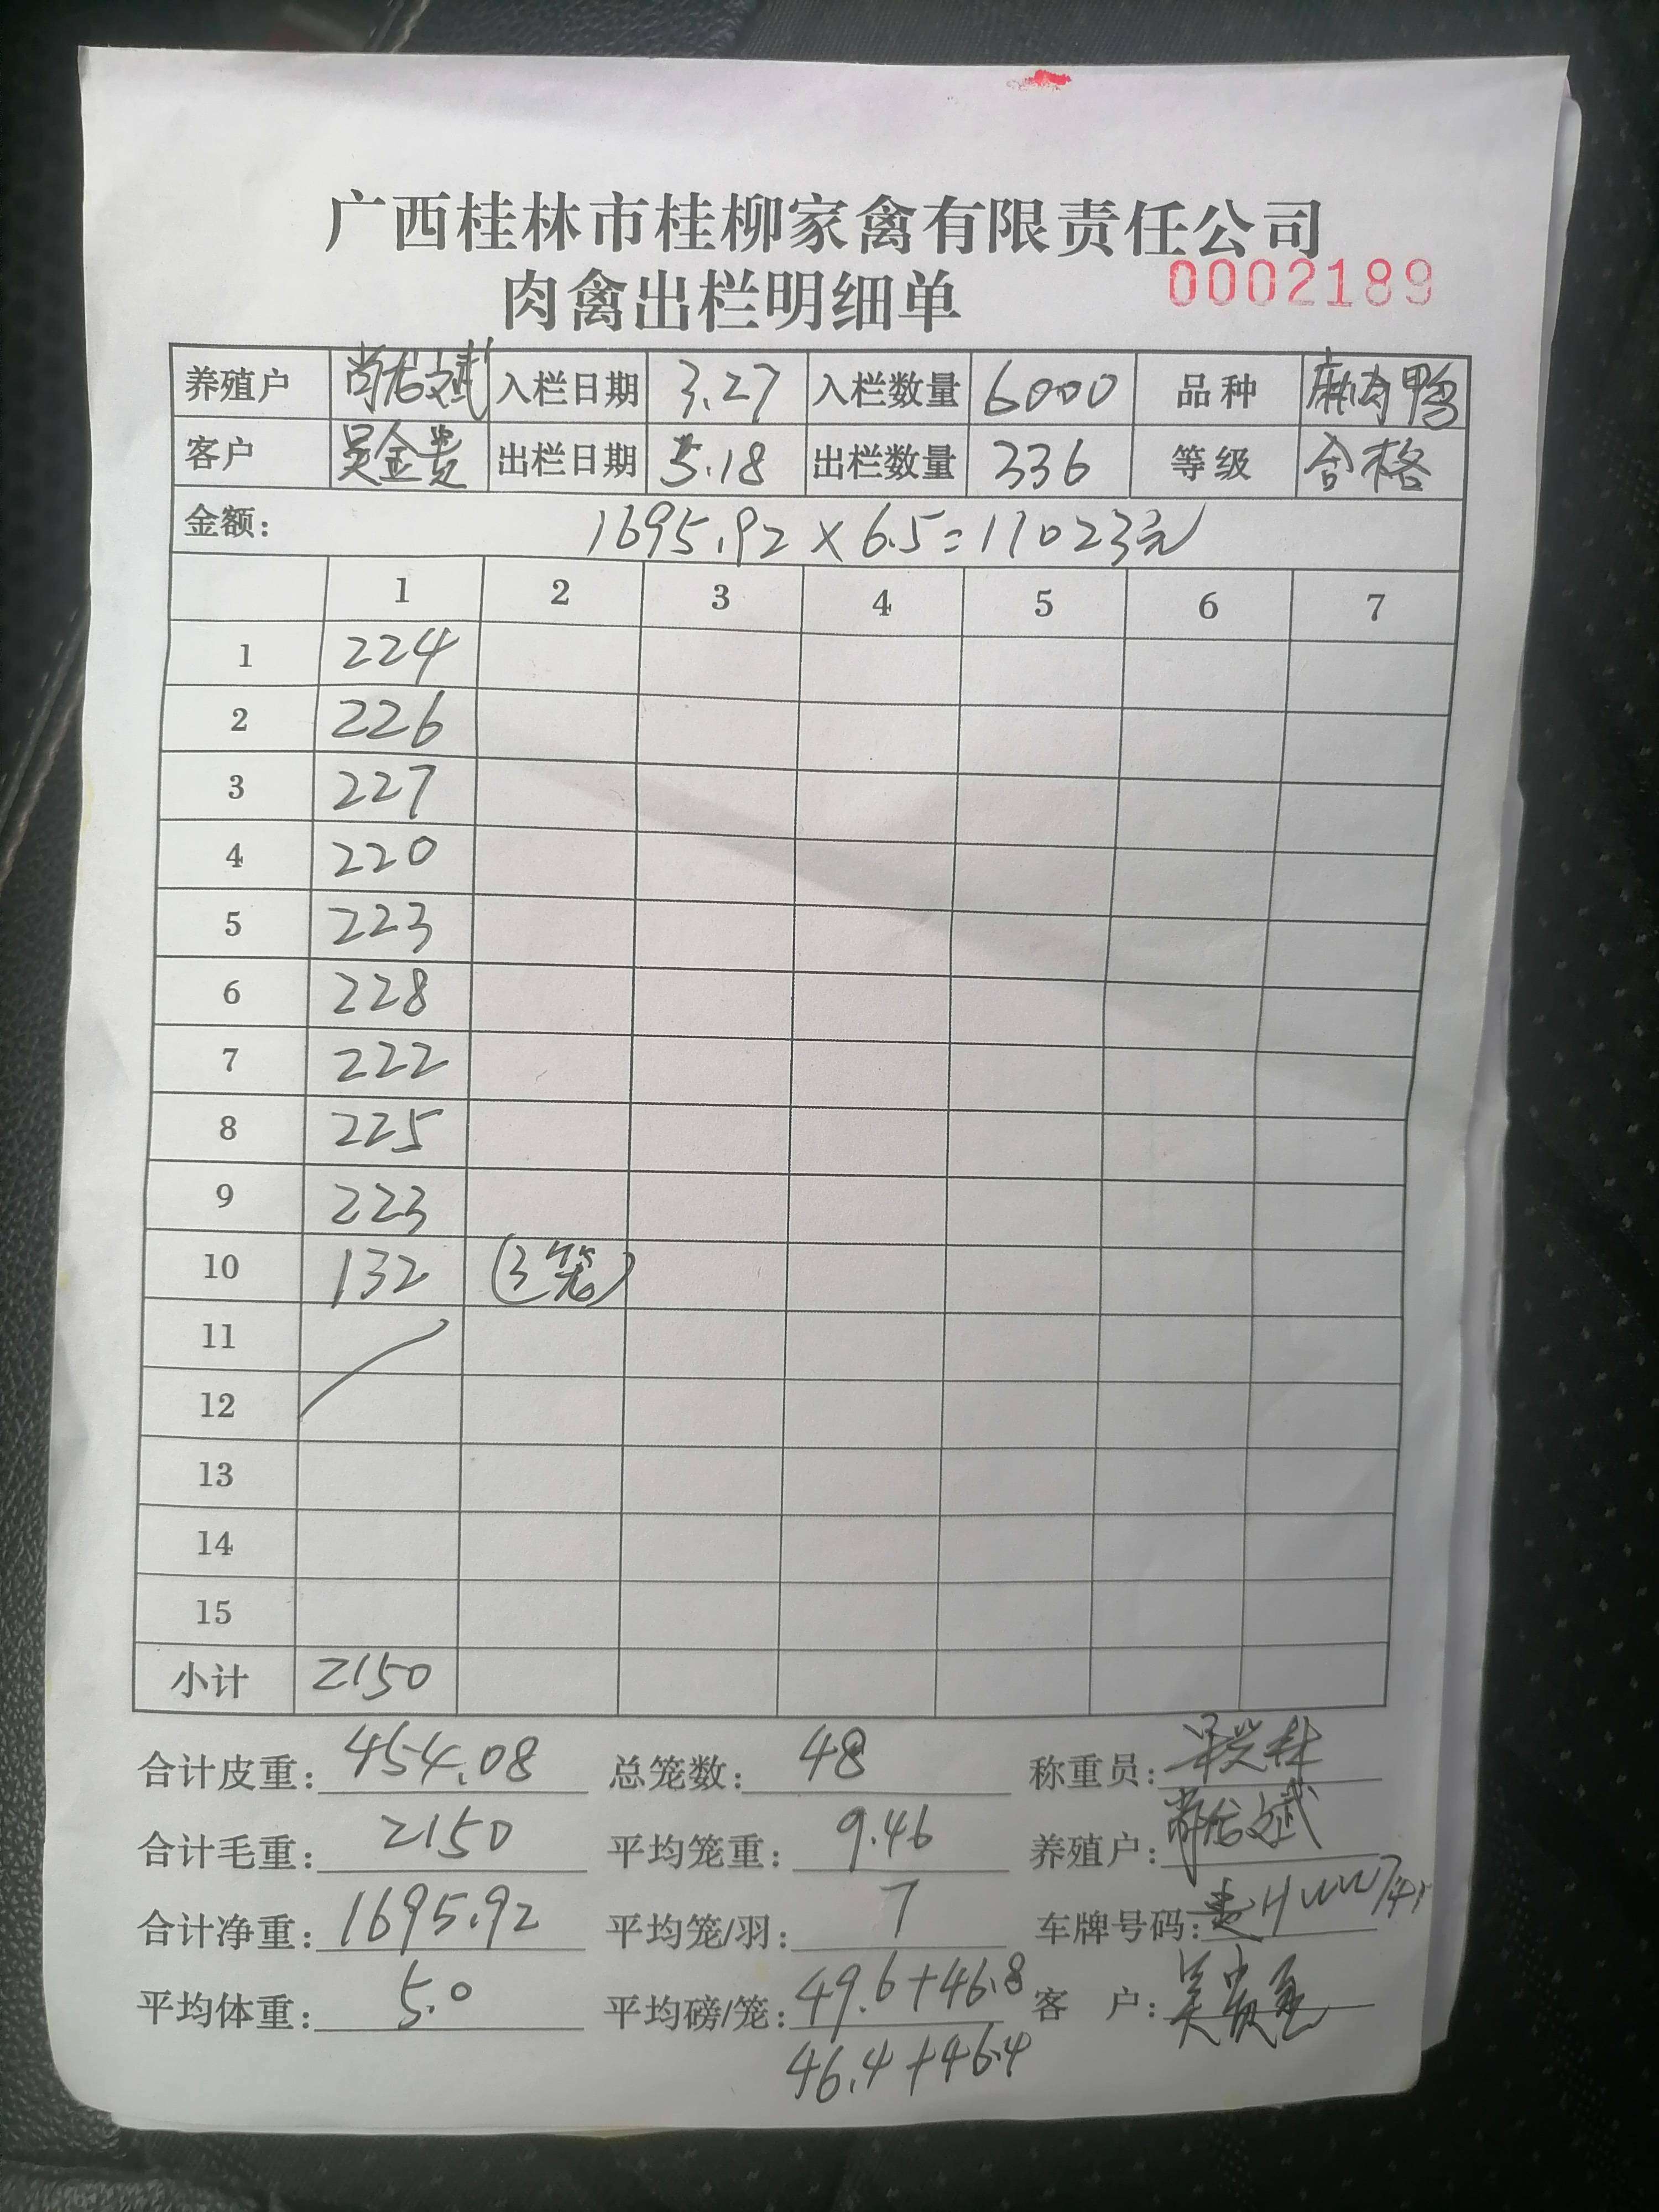 广西桂林市桂柳家禽有限责任公司
肉禽出栏明细单 0002189
养殖户 入栏日期 3.27 入栏数量 6000 品种 麻肉鸭
客户 吴金贵 出栏日期 5.18 出栏数量 336 等级 合格
金额: 1695.92×6.5=11023元
1 2 3 4 5 6 7
1 224
2 226
3 227
4 220
5 223
6 228
7 222
8 225
9 223
10 132 (3笼)
11
12
13
14
15
小计 2150
合计皮重: 454.08 总笼数: 48 称重员:
合计毛重: 2150 平均笼重: 9.46 养殖户:
合计净重: 1695.92 平均笼/羽: 7 车牌号码:
平均体重: 5.0 平均磅/笼: 49.6+46.8 客 户:
46.4+46.4